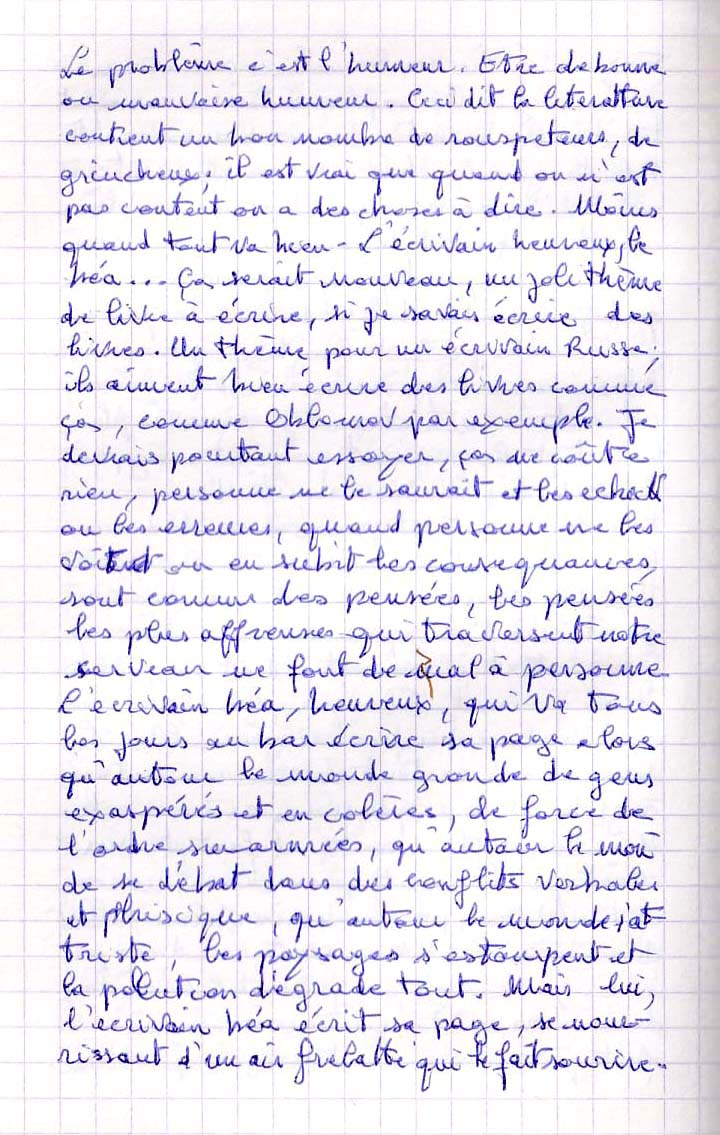 Le problème c'est l'humeur. Etre de bonne
ou mauvaise humeur. Ceci dit la literatture
contient un bon nombre de rouspeteurs, de
grincheux; il est vrai que quand on n'est
pas content on a des choses à dire. Moins
quand tout va bien - L'écrivain heureux, le
béa... Ça serait nouveau, un joli thème
de livre à écrire, si je savais écrire des
livres. Un thème pour un écrivain Russe;
ils aiment bien écrire des livres comme
ças, comme Oblomov par exemple. Je
devrais pourtant essayer, ças me coûte
rien, personne ne le saurait et les echecs
ou les erreurs, quand personne ne les
voit ou en subit les consequances,
sont comme des pensées, les pensées
les plus affreuses qui traversent notre
serveau ne font de mal à personne
L'écrivain béa, heureux, qui va tous
les jours au bar écrire sa page alors
qu'autour le monde gronde de gens
exaspérés et en colères, de force de
l'ordre surarmées, qu'autour le mon
de se débat dans des conflits verbales
et phisique, qu'autour le monde s'at
triste, les paysages s'estompent et
la polution dégrade tout. Mais lui,
l'écrivain béa écrit sa page, se nour-
rissant d'un air frelatté qui le fait sourire..